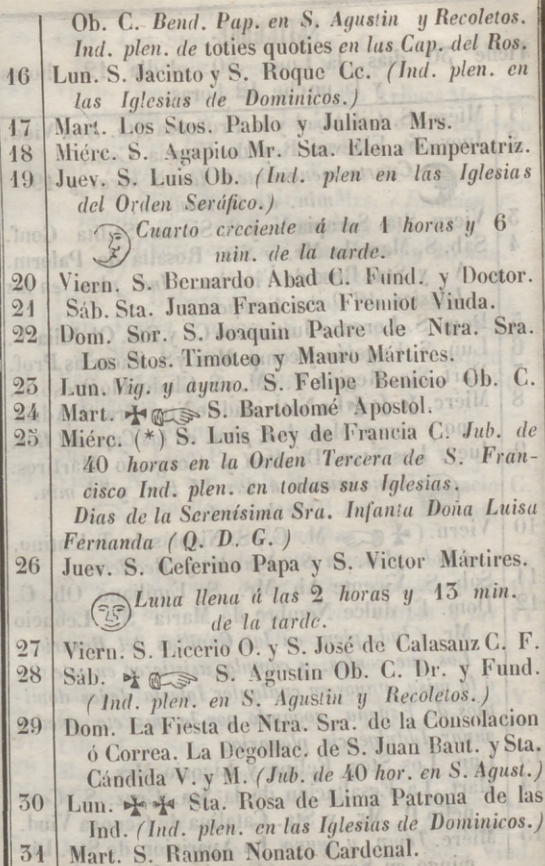 Ob. C. Bend. Pap. en S. Agustin y Recoletos.
Ind. plen. de toties quoties en las Cap. del Ros.
16 Lun. S. Jacinto y S. Roque Cc. (Ind. plen. en
las Iglesias de Dominicos.)
17 Mart. Los Stos. Pablo y Juliana Mrs.
18 Miérc. S. Agapito Mr. Sta. Elena Emperatriz.
19 Juev. S. Luis Ob. (Ind. plen en las Iglesias
del Orden Seráfico.)
Cuarto creciente á la 1 horas y 6
min. de la tarde.
20 Viern. S. Bernardo Abad C. Fund. y Doctor.
21 Sáb. Sta. Juana Francisca Fremiot Viuda.
22 Dom. Sor. S. Joaquin Padre de Ntra. Sra.
Los Stos. Timoteo y Mauro Mártires.
23 Lun. Vig. y ayuno. S. Felipe Benicio Ob. C.
24 Mart. ✠ ☞ S. Bartolomé Apostol.
25 Miérc. (*) S. Luis Rey de Francia C. Jub. de
40 horas en la Orden Tercera de S. Fran-
cisco Ind. plen. en todas sus Iglesias.
Dias de la Serenísima Sra. Infanta Doña Luisa
Fernanda (Q. D. G.)
26 Juev. S. Ceferino Papa y S. Victor Mártires.
Luna llena á las 2 horas y 13 min.
de la tarde.
27 Viern. S. Licerio O. y S. José de Calasanz C. F.
28 Sáb. ✠ ☞ S. Agustin Ob. C. Dr. y Fund.
(Ind. plen. en S. Agustin y Recoletos.)
29 Dom. La Fiesta de Ntra. Sra. de la Consolacion
ó Correa. La Degollac. de S. Juan Baut. y Sta.
Cándida V. y M. (Jub. de 40 hor. en S. Agust.)
30 Lun. ✠ ✠ Sta. Rosa de Lima Patrona de las
Ind. (Ind. plen. en las Iglesias de Dominicos.)
31 Mart. S. Ramon Nonato Cardenal.